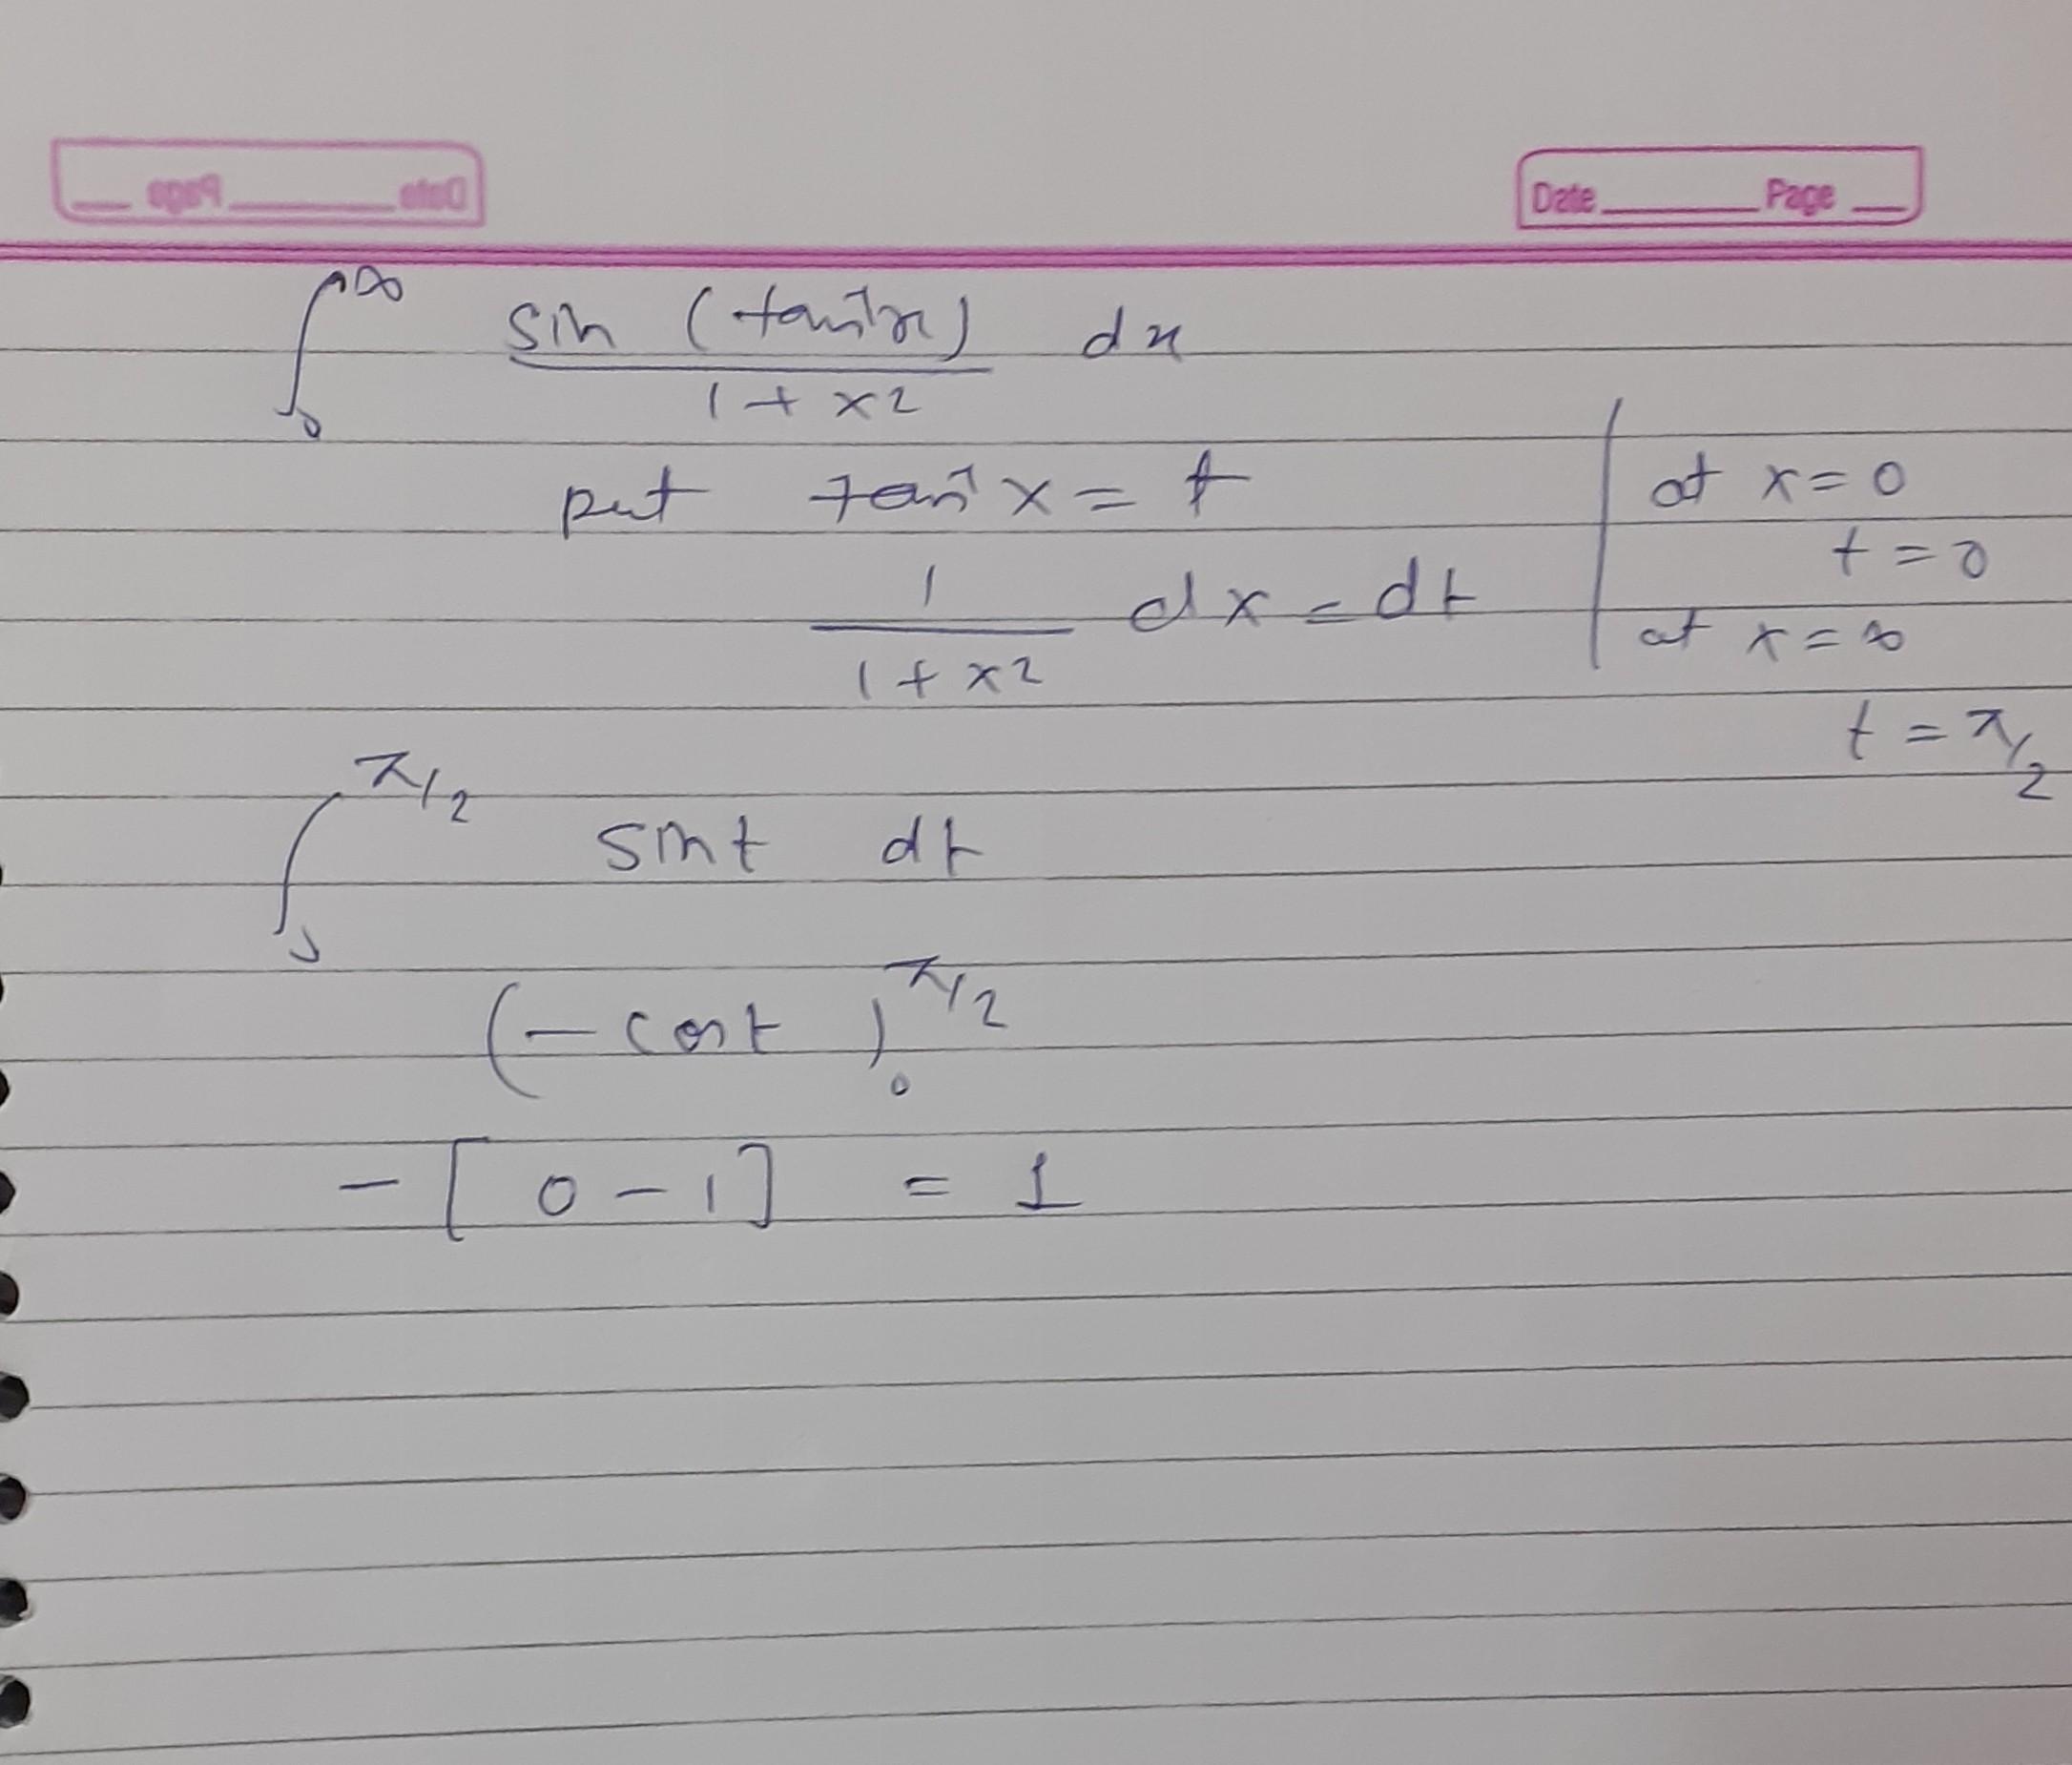 Date Page
∫₀^∞ sin (tan⁻¹x) / 1 + x² dx
put tan⁻¹ x = t
1 / 1 + x² dx = dt
at x = 0
t = 0
at x = ∞
t = π/2
∫₀^π/2 sin t dt
(– cos t)₀^π/2
– [ 0 – 1 ] = 1